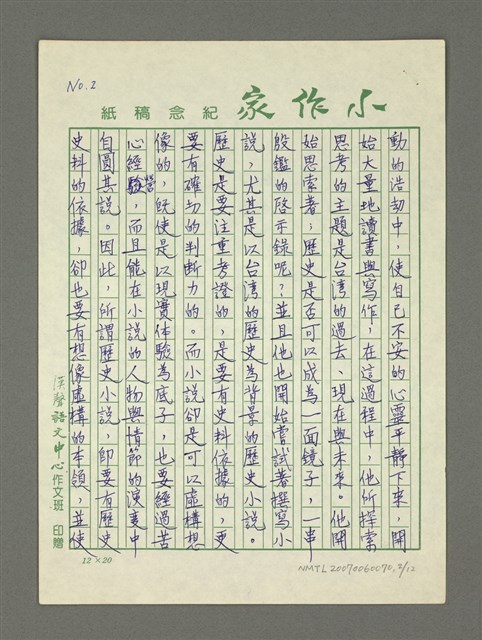 No.2
小作家 紀念稿紙
動的浩劫中，使自己不安的心靈平靜下來，開
始大量地讀書與寫作，在這過程中，他所探索
思考的主題是台湾的過去、現在與未來。他開
始思索著；歷史是否可以成為一面鏡子，一串
殷鑑的啓示錄呢？並且他也開始嘗試著撰寫小
說，尤其是以台湾的歷史為背景的歷史小說。
歷史是要注重考證的，是要有史料依據的，更
要有確切的判斷力的。而小說卻是可以虛構想
像的，既使是以現實体驗為底子，也要經過苦
心經營，而且能在小說的人物與情節的演變中
自圓其說。因此，所謂歷史小說，即要有歷史
史料的依據，卻也要有想像虛構的本領，並使
漢聲語文中心作文班 印贈
12×20
NMTL20070060070, 2/12